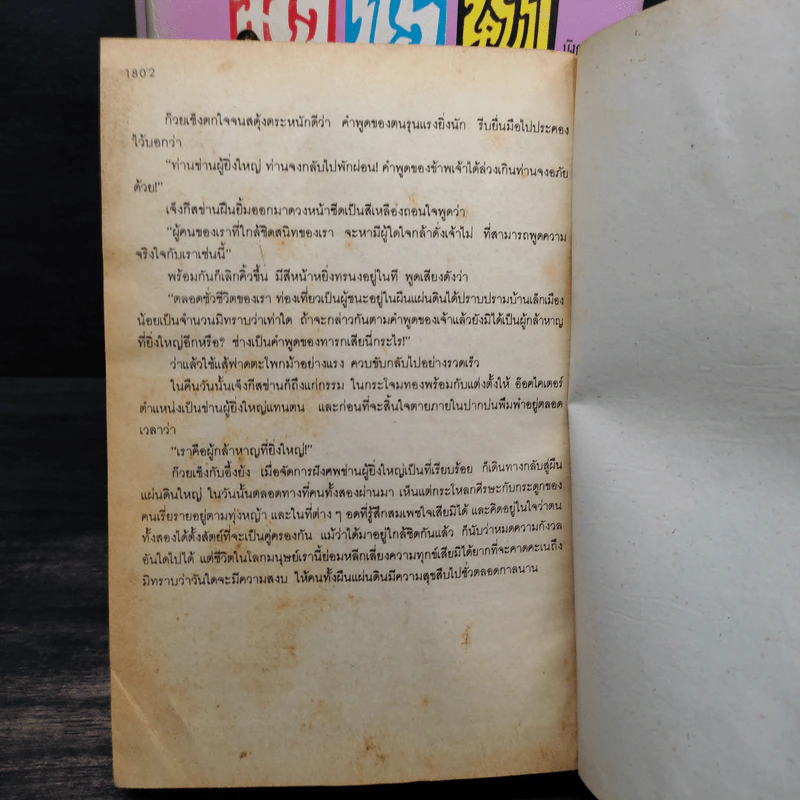 มังกรหยก
1802
ก๊วยเช็งตกใจจนสดุ้งตระหนักดีว่า คำพูดของตนรุนแรงยิ่งนัก รีบยื่นมือไปประคอง
ไว้บอกว่า
“ท่านข่านผู้ยิ่งใหญ่ ท่านจงกลับไปพักผ่อน! คำพูดของข้าพเจ้าได้ล่วงเกินท่านจงอภัย
ด้วย!”
เจ็งกีสข่านฝืนยิ้มออกมาดวงหน้าซีดเป็นสีเหลืองถอนใจพูดว่า
“ผู้คนของเราที่ใกล้ชิดสนิทของเรา จะหามีผู้ใดใจกล้าดั่งเจ้าไม่ ที่สามารถพูดความ
จริงใจกับเราเช่นนี้”
พร้อมกันก็เลิกคิ้วขึ้น มีสีหน้าหยิ่งทรนงอยู่ในที พูดเสียงดังว่า
“ตลอดชั่วชีวิตของเรา ท่องเที่ยวเป็นผู้ชนะอยู่ในผืนแผ่นดินได้ปราบปรามบ้านเล็กเมือง
น้อยเป็นจำนวนมิทราบว่าเท่าใด ถ้าจะกล่าวกันตามคำพูดของเจ้าแล้วยังมิได้เป็นผู้กล้าหาญ
ที่ยิ่งใหญ่อีกหรือ? ช่างเป็นคำพูดของทารกเสียนี่กระไร!”
ว่าแล้วใช้แส้ฟาดตะโพกม้าอย่างแรง ควบขับกลับไปอย่างรวดเร็ว
ในคืนวันนั้นเจ็งกีสข่านก็ถึงแก่กรรม ในกระโจมทองพร้อมกับแต่งตั้งให้ อ๊อคไคเตอร์
ตำแหน่งเป็นข่านผู้ยิ่งใหญ่แทนตน และก่อนที่จะสิ้นใจตายภายในปากบ่นพึมพำอยู่ตลอด
เวลาว่า
“เราคือผู้กล้าหาญที่ยิ่งใหญ่!”
ก๊วยเช็งกับอึ้งย้ง เมื่อจัดการฝังศพข่านผู้ยิ่งใหญ่เป็นที่เรียบร้อย ก็เดินทางกลับสู่ผืน
แผ่นดินใหญ่ ในวันนั้นตลอดทางที่คนทั้งสองผ่านมา เห็นแต่กระโหลกศีรษะกับกระดูกของ
คนเรี่ยรายอยู่ตามทุ่งหญ้า และในที่ต่าง ๆ อดที่รู้สึกสมเพชใจเสียมิได้ และคิดอยู่ในใจว่าตน
ทั้งสองได้ตั้งสัตย์ที่จะเป็นคู่ครองกัน แม้ว่าได้มาอยู่ใกล้ชิดกันแล้ว ก็นับว่าหมดความกังวล
อันใดไปได้ แต่ชีวิตในโลกมนุษย์เรานี้ย่อมหลีกเลี่ยงความทุกข์เสียมิได้ยากที่จะคาดคะเนถึง
มิทราบว่าวันใดจะมีความสงบ ให้คนทั้งผืนแผ่นดินมีความสุขสืบไปชั่วตลอดกาลนาน